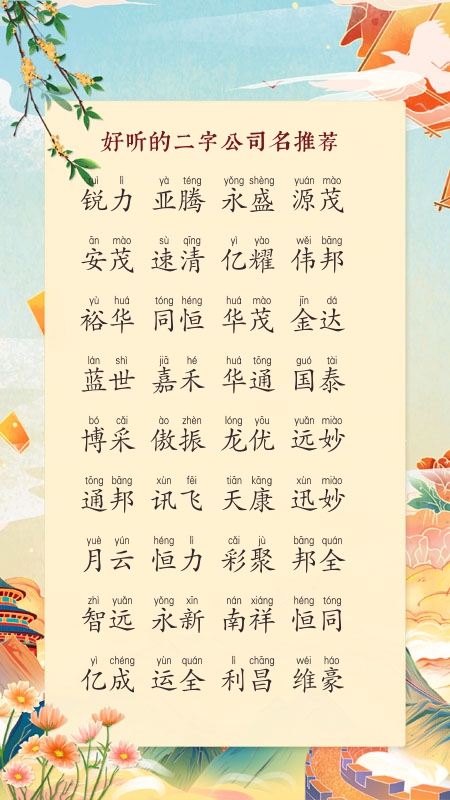 好听的二字公司名推荐
uì lì yà téng yǒng shèng yuán mào
锐力 亚腾 永盛 源茂
ān mào sù qīng yì yào wěi bāng
安茂 速清 亿耀 伟邦
yù huá tóng héng huá mào jīn dá
裕华 同恒 华茂 金达
lán shì jiā hé huá tōng guó tài
蓝世 嘉禾 华通 国泰
bó cǎi ào zhèn lóng yōu yuǎn miào
博采 傲振 龙优 远妙
tōng bāng xùn fēi tiān kāng xùn miào
通邦 讯飞 天康 迅妙
yuè yún héng lì cǎi jù bāng quán
月云 恒力 彩聚 邦全
zhì yuǎn yǒng xīn nán xiáng héng tóng
智远 永新 南祥 恒同
yì chéng yùn quán lì chāng wéi háo
亿成 运全 利昌 维豪